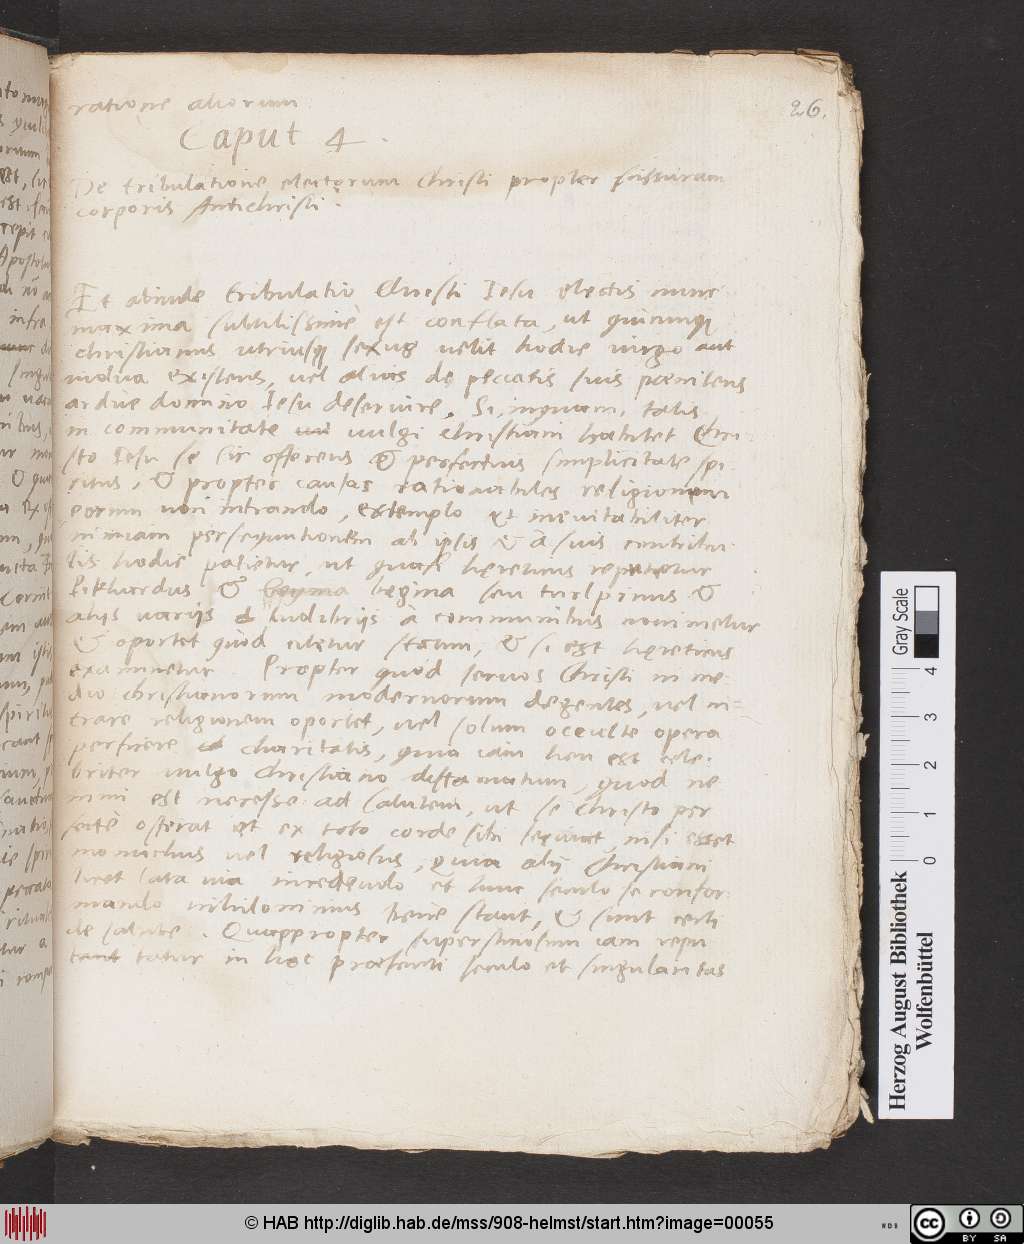 ratione aliorum
26.
Caput 4.
De tribulatione electorum Christi propter scissuram
corporis Antichristi.
Et abinde tribulatio Christi Iesu electis nunc
maxima subtilissime est conflata, ut quicunq
christianus utriusq sexus uelit hodie uirgo aut
uidua existens, uel alius de peccatis suis poenitens
ardue domino Iesu deseruire. Si, inquam, talis
in communitate uulgi christiani habitet Chri
sto Iesu se sic offerens & perfectius simplicitate spi
ritus, & propter causas rationabiles religionem
eorum non intrando, extemplo et ineuitabiliter
nimiam persequutionem ab ipsis & à suis contribu
lis hodie patietur, ut quasi hęreticus reputetur
Pikhardus & begina seu turlpinus &
alijs uarijs ludibrijs à communibus nominetur
& oportet quòd citetur statim, & si est hęreticus
examinetur Propter quod seruos Christi in me
dio christianorum modernorum degentes, uel in=
trare religionem oportet, uel solum occulte opera
perficere charitatis, quia iam heu est cele
briter uulgo christiano diffamatum, quod ne
mini est necesse ad salutem, ut se christo per
fecte offerat et ex toto corde sibi seruiat, nisi esset
monachus uel religiosus, quia alij Christiani
licet lata uia incedendo et huic seculo se confor
mando nihilominus bene stant, & sunt certi
de salute. Quappropter superstitiosum iam repu
tatur in hoc praesenti seculo et singularitas
Gray Scale
0 1 2 3 4
Herzog August Bibliothek
Wolfenbüttel
© HAB http://diglib.hab.de/mss/908-helmst/start.htm?image=00055
WDB
cc BY SA